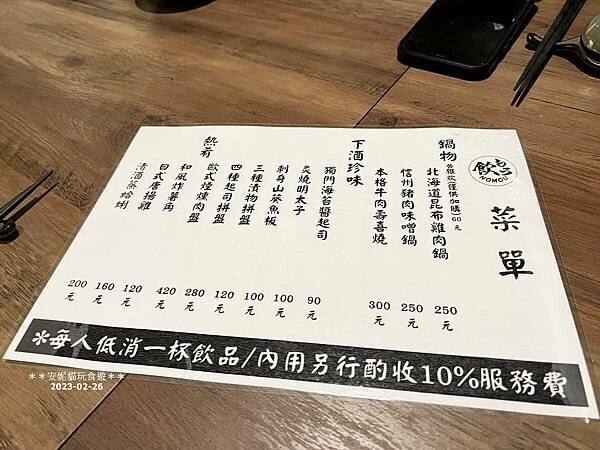 飲もう
NOMOU
菜單
鍋物
雜炊(僅供加購)60元
北海道昆布雞肉鍋 250元
信州豬肉味噌鍋 250元
本格牛肉壽喜燒 300元
下酒珍味
獨門海苔醬起司 90元
炙燒明太子 100元
刺身山葵魚板 100元
三種漬物拼盤 120元
四種起司拼盤 280元
歐式煙燻肉盤 420元
熱肴
和風炸薯角 120元
日式唐揚雞 160元
清酒蒸蛤蜊 200元
※每人低消一杯飲品/內用另行酌收10%服務費
**安妮貓玩食遊**
2023-02-26